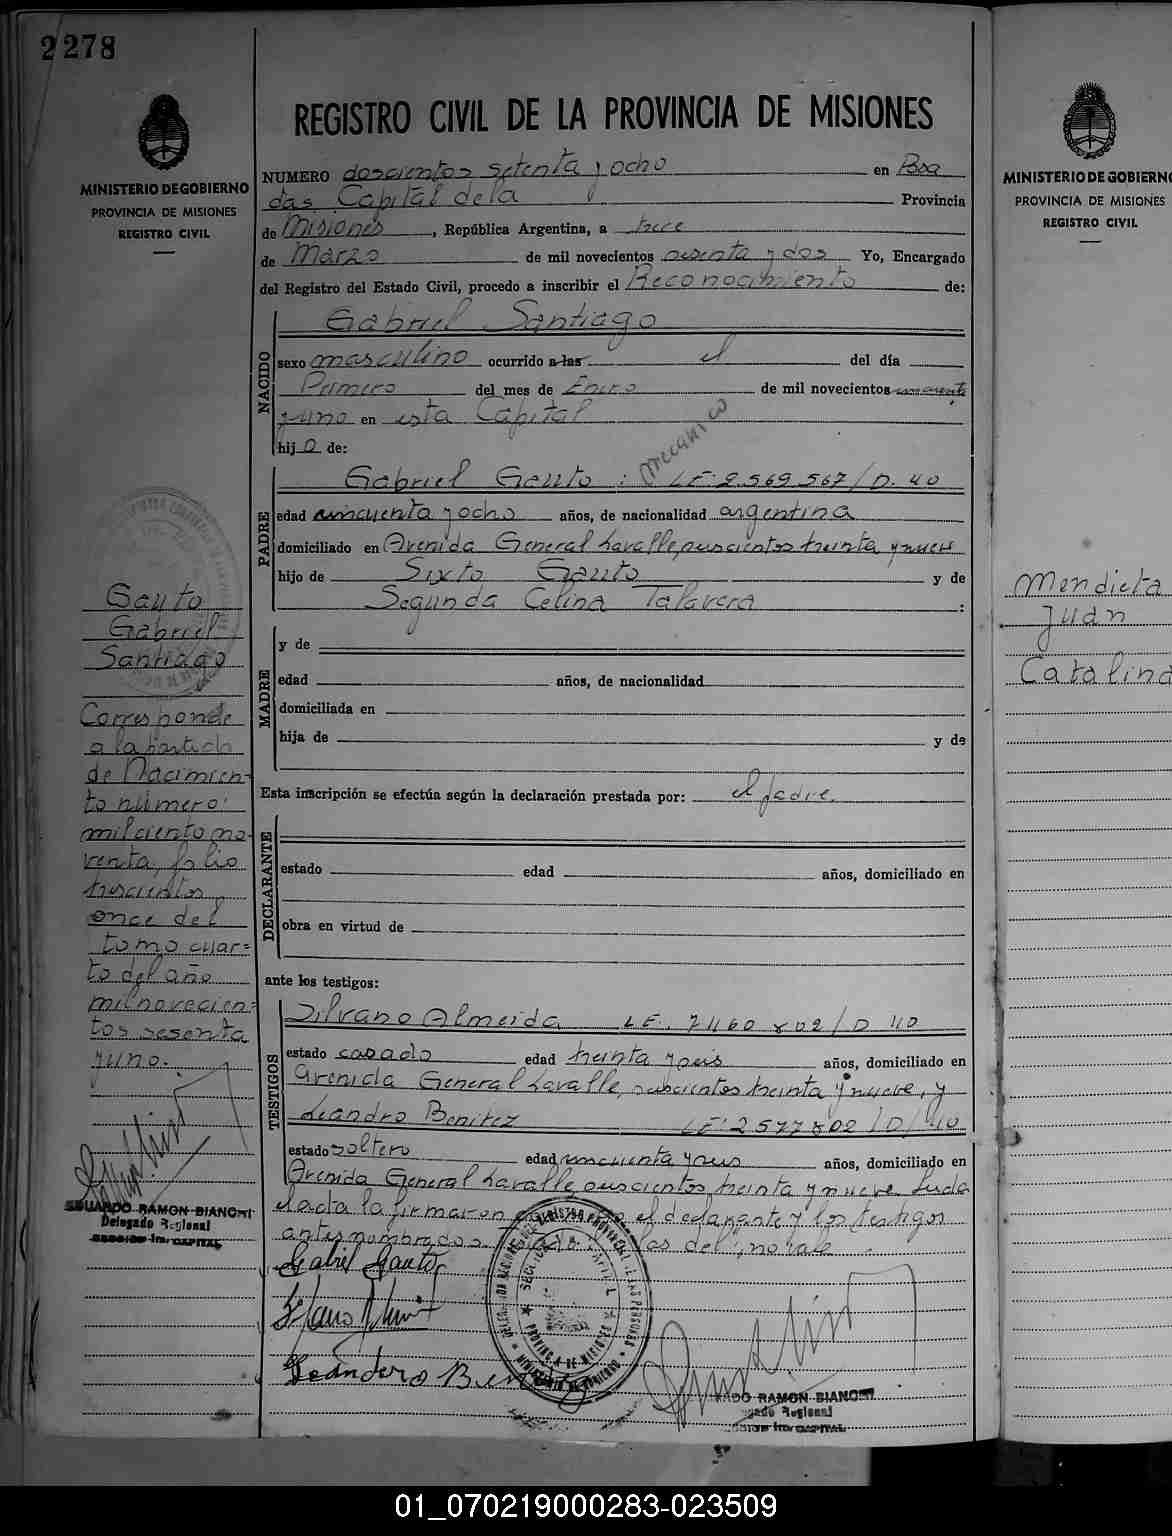 2278
MINISTERIO DE GOBIERNO
PROVINCIA DE MISIONES
REGISTRO CIVIL
REGISTRO CIVIL DE LA PROVINCIA DE MISIONES
NUMERO doscientos setenta y ocho en Posa
das Capital de la Provincia
de Misiones, República Argentina, a trece
de Marzo de mil novecientos sesenta y dos Yo, Encargado
del Registro del Estado Civil, procedo a inscribir el Reconocimiento de:
NACIDO
Gabriel Santiago
sexo masculino ocurrido a las el del día
Primero del mes de Enero de mil novecientos
y uno en esta Capital
hijo de:
mecanico
PADRE
Gabriel Gauto : LE 2.569.567/D. 40
edad cincuenta y ocho años, de nacionalidad argentina
domiciliado en Avenida General Lavalle seiscientos treinta y nueve
hijo de Sixto Gauto y de
Segunda Celina Talavera :
MADRE
y de
edad años, de nacionalidad
domiciliada en
hija de y de
Esta inscripción se efectúa según la declaración prestada por: el padre.
DECLARANTE
estado edad años, domiciliado en
obra en virtud de
ante los testigos:
TESTIGOS
Silvano Almeida LE. 7460802/D 40
estado casado edad treinta y seis años, domiciliado en
Avenida General Lavalle, seiscientos treinta y nueve, y
Leandro Benitez LE: 2577802/D/40
estado soltero edad cincuenta y seis años, domiciliado en
Avenida General Lavalle seiscientos treinta y nueve Leida
el acta la firmaron el declarante y los testigos
antes nombrados. las del, no vale
Gabriel Gauto
Leandero
EDUARDO RAMON BIANCHI
Delegado Regional
SECCION 1ra. CAPITAL
Gauto
Gabriel
Santiago
Corresponde
a la partida
de Nacimien-
to número:
mil ciento no-
venta, folio
trescientos
once del
tomo cuar=
to del año
mil novecien=
tos sesenta
y uno.
EDUARDO RAMON BIANCHI
Delegado Regional
SECCION 1ra. CAPITAL
MINISTERIO DE GOBIERNO
PROVINCIA DE MISIONES
REGISTRO CIVIL
Mendieta
Juan
Catalino
01_070219000283-023509